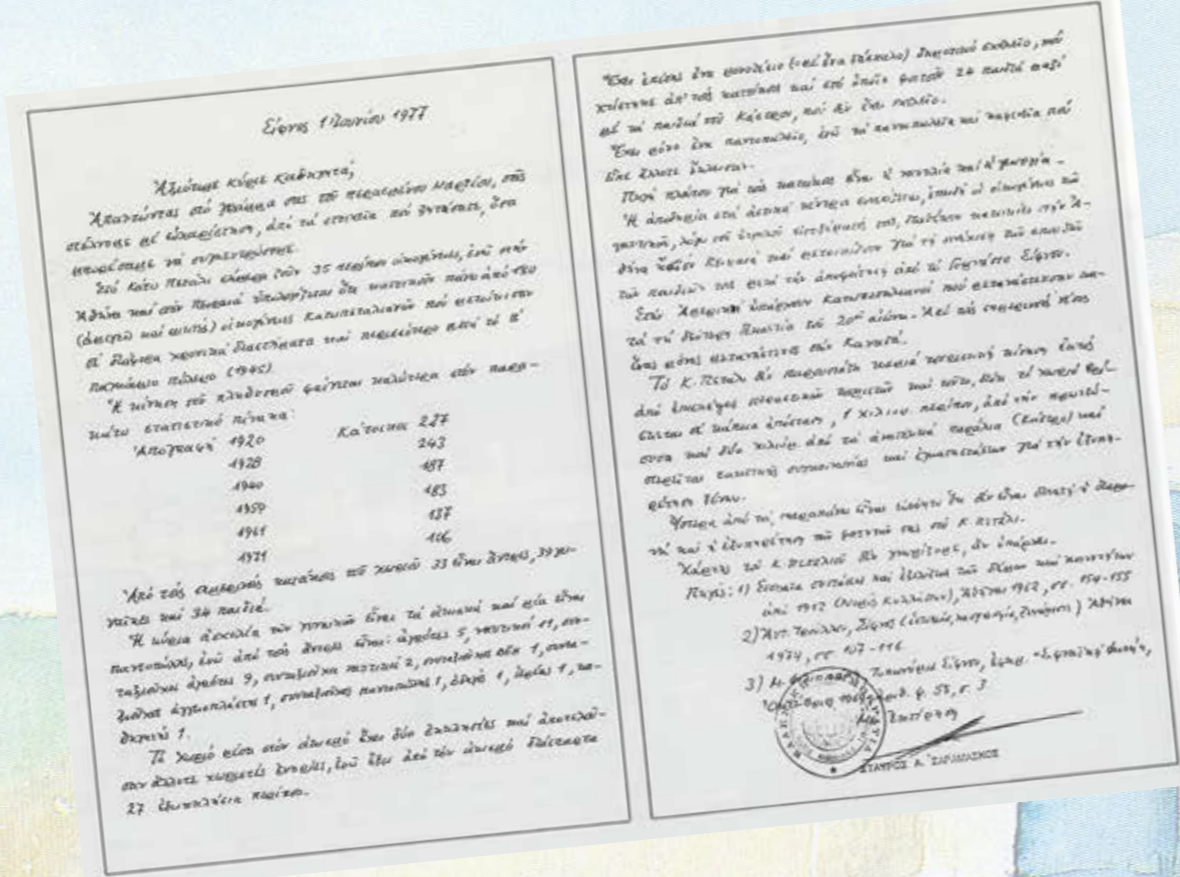 Σίφνος 1 Ἰουνίου 1977
Ἀξιότιμε Κύριε Καθηγητά,
Ἀπαντώντας στό γράμμα σας τοῦ περασμένου Μαρτίου, σᾶς
στέλνουμε μέ εὐχαρίστηση, ἀπό τά στοιχεῖα πού ζητήσατε, ὅσα
μπορέσαμε νά συγκεντρώσουμε.
Στό Κάτω Πετάλι σήμερα ζοῦν 35 περίπου οἰκογένειες, ἐνῶ στήν
Ἀθήνα καί στόν Πειραιᾶ ὑπολογίζεται ὅτι κατοικοῦν πάνω ἀπό 120
οἰκογένειες Καταπεταλιανῶν πού
σέ διάφορα χρονικά διαστήματα καί περισσότερο μετά τό Β΄
παγκόσμιο πόλεμο (1945).
Ἡ κίνηση τοῦ πληθυσμοῦ φαίνεται καλύτερα στόν παρα-
κάτω στατιστικό πίνακα:
Ἀπογραφή 1920 Κάτοικοι 227
1928 243
1940 187
1950 183
1961 137
1971 106
Ἀπό τούς σημερινούς κατοίκους τοῦ χωριοῦ 33 εἶναι ἄντρες, 39 γυ-
ναῖκες καί 34 παιδιά.
Ἡ κύρια ἀσχολία τῶν γυναικῶν εἶναι τά οἰκιακά καί μία εἶναι
παντοπώλης, ἐνῶ ἀπό τούς ἄντρες εἶναι: ἀγρότες 5, ναυτικοί 11, συν-
ταξιοῦχοι ἀγρότες 9, συνταξιοῦχοι ναυτικοί 2, συνταξιοῦχος 1, συντα-
ξιοῦχος ἀγγειοπλάστης 1, συνταξιοῦχος παντοπώλης 1, ὁδηγός 1, ἱερέας 1,
1.
Τό χωριό μέσα στόν οἰκισμό ἔχει δύο ἐκκλησίες καί ἀποτελοῦ-
σαν ἄλλοτε χωριστές ἐνορίες, ἐνῶ ἔξω ἀπό τόν οἰκισμό διάσπαρτα
27 ἐξωκκλήσια περίπου.
Ἔχει ἐπίσης ἕνα μονοθέσιο (μέ ἕνα δάσκαλο) δημοτικό σχολεῖο, πού
χτίστηκε ἀπ' τούς κατοίκους καί στό ὁποῖο φοιτοῦν 24 παιδιά μαζί
μέ τά παιδιά τοῦ Κάστρου, πού δέν ἔχει σχολεῖο.
Ἔχει μόνο ἕνα παντοπωλεῖο, ἐνῶ τά παντοπωλεῖα καί καφενεῖα πού
εἶχε ἄλλοτε ἔκλεισαν.
Πηγή πλούτου γιά τούς κατοίκους εἶναι ἡ ναυτιλία καί ἡ γεωργία.
Ἡ ἀποδημία στά ἀστικά κέντρα συνεχίζεται, ἐπειδή οἱ οἰκογένειες τῶν
ναυτικῶν, λόγω τοῦ εἰσοδήματός τους, κατοικία στήν Ἀ-
θήνα καί γιά τή συνέχιση τῶν σπουδῶν
τῶν παιδιῶν τους μετά τήν ἀποφοίτηση ἀπό τό Γυμνάσιο Σίφνου.
Στήν Ἀμερική ὑπάρχουν Καταπεταλιανοί πού μετανάστευσαν κα-
τά τή δεύτερη δεκαετία τοῦ 20οῦ αἰώνα. Ἀπό τούς σημερινούς νέους
ἕνας μόνος μετανάστευσε στόν Καναδᾶ.
Τό Κ. Πετάλι δέν παρουσιάζει καμιά τουριστική κίνηση ἐκτός
ἀπό ἐπισκέψεις τουριστῶν καί τοῦτο, διότι τό χωριό βρί-
σκεται σέ κάποια ἀπόσταση, 1 χιλιομ. περίπου, ἀπό τήν πρωτεύ-
ουσα καί δύο χιλιόμ. ἀπό τά ἀνατολικά παράλια (Κάστρο) καί
στερεῖται τακτικῆς συγκοινωνίας καί ἐγκαταστάσεων γιά τήν ἐξυπη-
ρέτηση ξένων.
Ὕστερα ἀπό τά παραπάνω εἶναι εὐνόητο ὅτι δέν εἶναι δυνατή ἡ διαμο-
νή καί ἡ ἐξυπηρέτηση τῶν φοιτητῶν σας στό Κ. Πετάλι.
Χάρτες τοῦ Κ. Πεταλιοῦ δέν γνωρίζουμε, ἄν ὑπάρχει.
Πηγές: 1) Στοιχεῖα συστάσεως καί ἐξελίξεως τῶν Δήμων καί Κοινοτήτων
ἀπό 1912 (Νομός Κυκλάδων), Ἀθῆναι 1962, σσ. 154-155
2) Ἀντ. Τρούλλου, Σίφνος ( ) Ἀθήνα
1974, σσ. 107-116
3) Τοπωνύμια Σίφνου, ἐφημ. "Σιφναϊκή Φωνή",
φ. 55, σ. 3
Μέ ἐκτίμηση
ΣΤΑΥΡΟΣ Α.